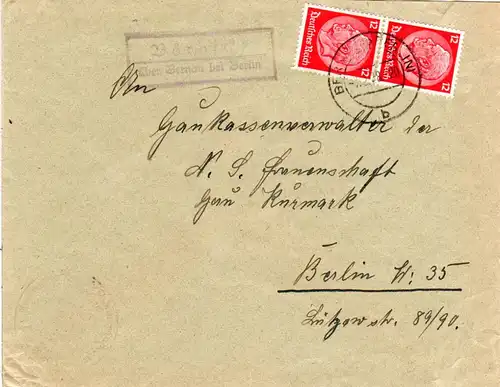 über Bernau bei Berlin
Deutsches Reich
12 12
Deutsches Reich
12 12
BER
b
An
Gaukassenverwalter der
N. S. Frauenschaft
Gau Kurmark
Berlin W. 35
Lützowstr. 89/90.